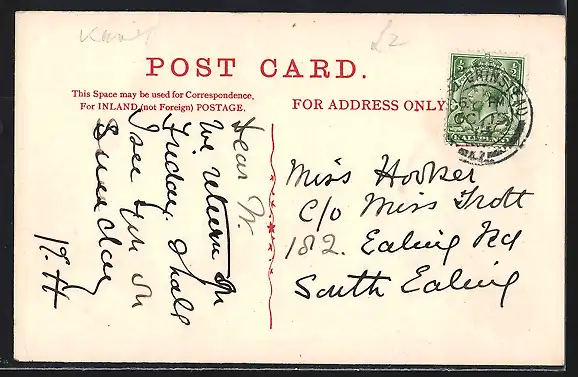 £2
POST CARD.
This Space may be used for Correspondence,
For INLAND (not Foreign) POSTAGE.
FOR ADDRESS ONLY
Dear W.
We return on
Friday. Shall
I see you on
Sunday
Miss Hooker
C/o Miss Trott
182. Ealing Rd
South Ealing